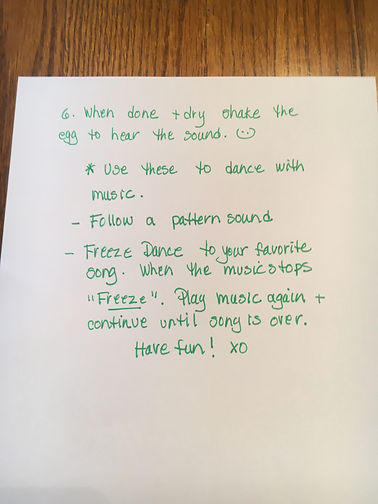 6. When done + dry shake the
egg to hear the sound. ☺
* Use these to dance with
music.
- Follow a pattern sound
- Freeze Dance to your favorite
song. When the music stops
"Freeze". Play music again +
continue until song is over.
Have fun! XO